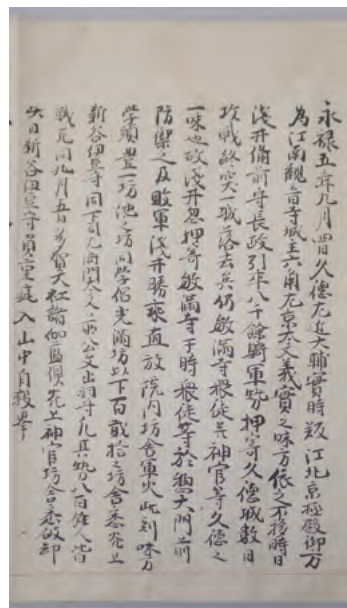 永禄五年九月四日久徳左近大輔實時叛江北京極殿御方
為江南觀音寺城主六角左京大夫義實之味方依之不移時日
浅井備前守長政引率八千餘騎軍勢押寄久徳城數日
攻戦終突一城落去矣仍敏満寺衆徒并神官等久徳之
一味也故浅井忽押寄敏満寺于時衆徒等於惣大門前
防禦之及敗軍浅井勝乘直放院内坊舎軍火此刻味方
学頭豊一坊池之坊同学侶光満坊以下百貳拾之坊舎悉炎上
新谷伊豆守同下司左衛門公文出羽守凡其勢八百餘人皆
戦死同九月五日多賀大社諸伽藍倶炎上神官坊舎悉破却
次日新谷伊豆守員重庭入山中自殺畢